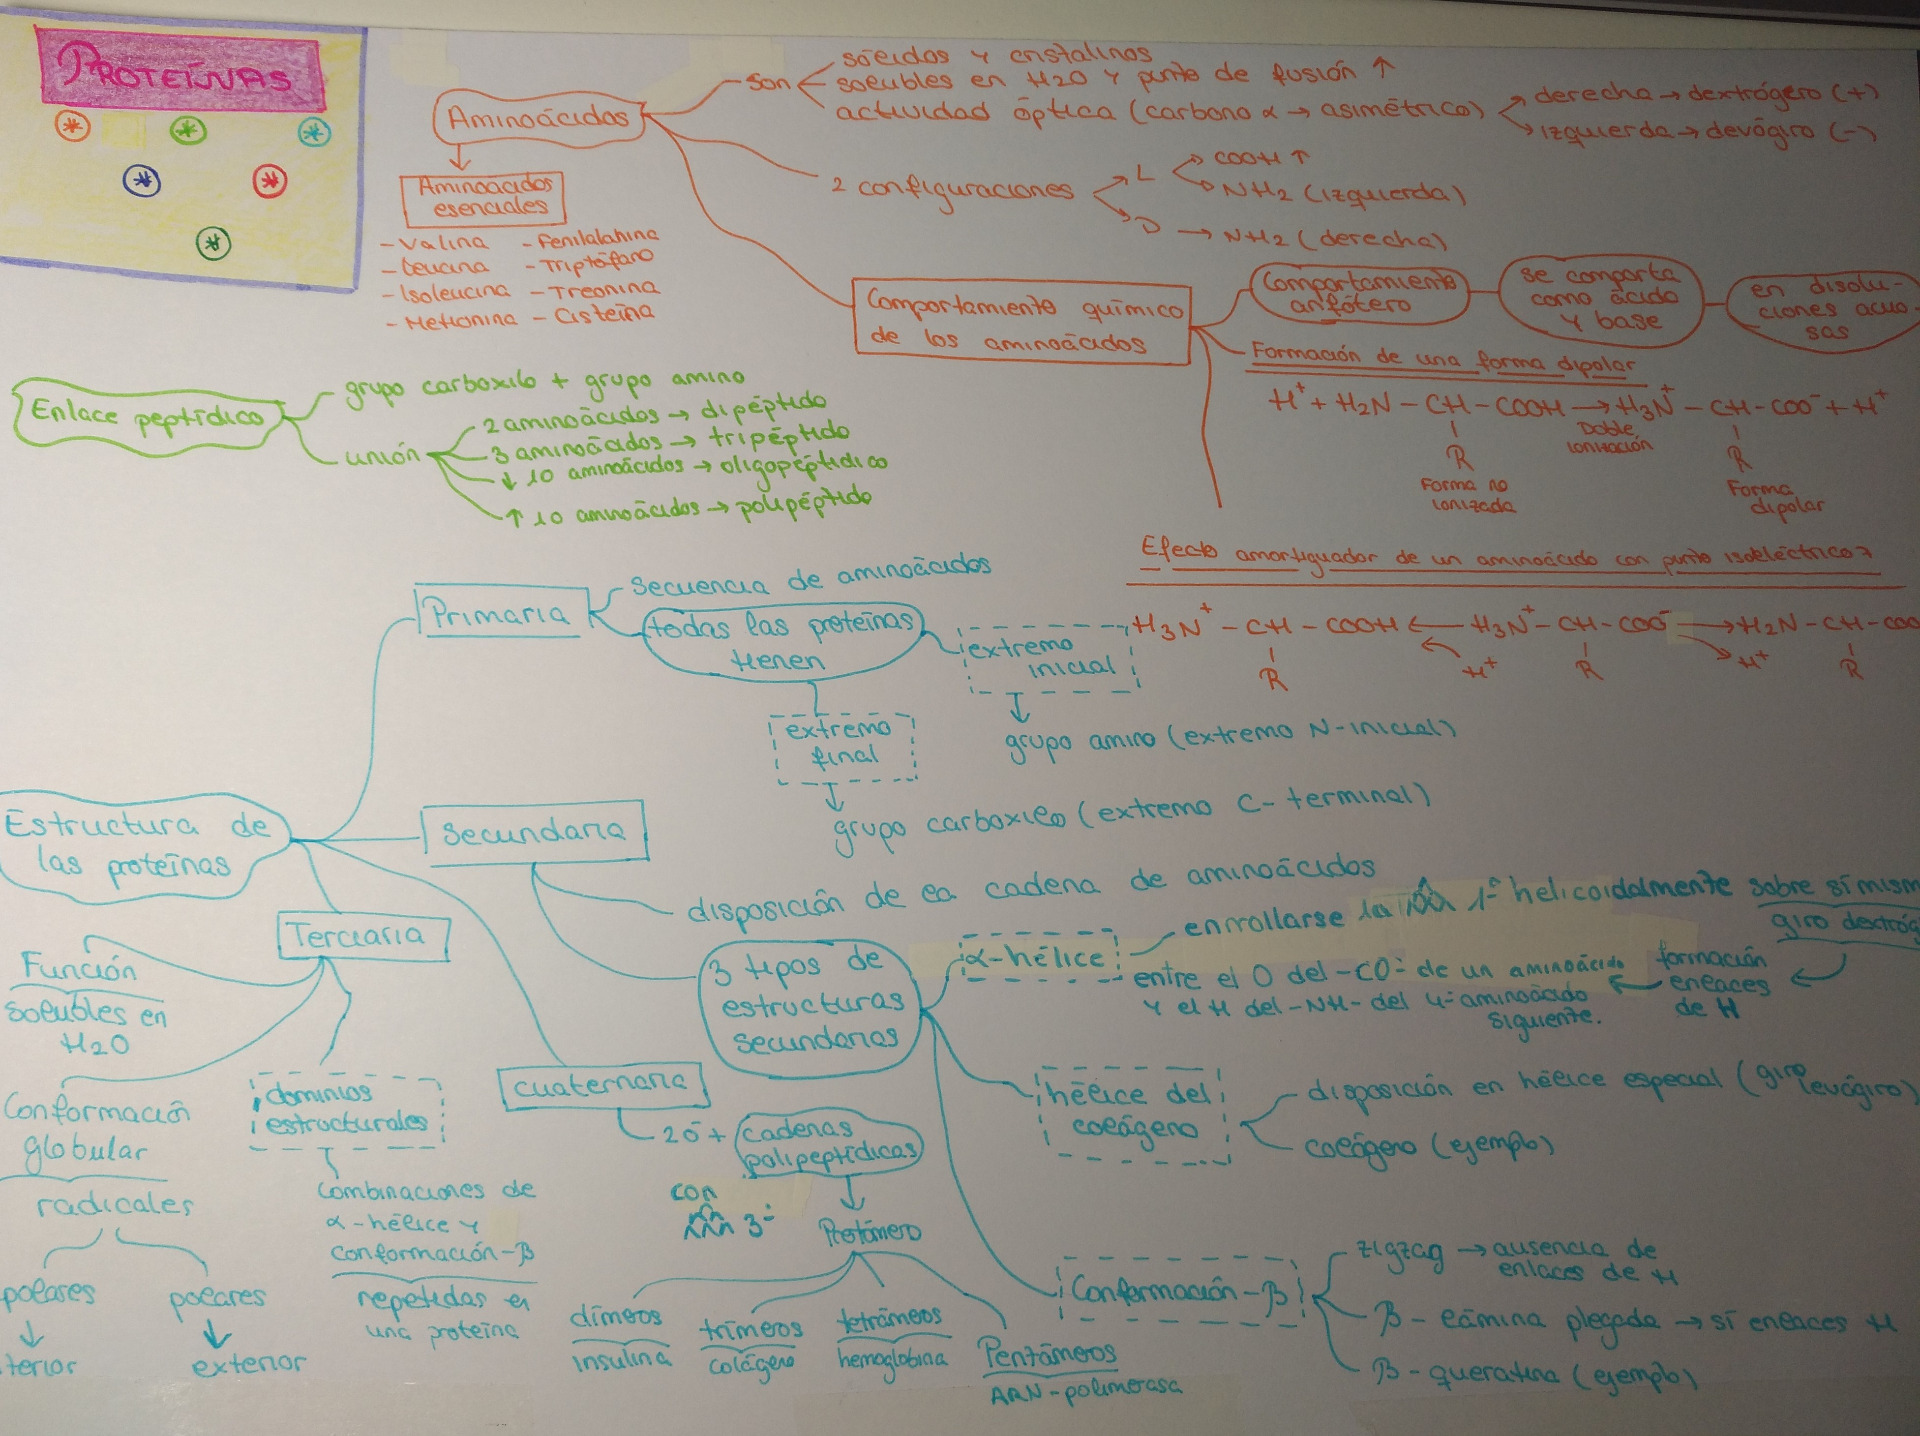 PROTEÍNAS
Aminoácidos
son
sólidos y cristalinos
solubles en H2O y punto de fusión ↑
actividad óptica (carbono α → asimétrico)
derecha → dextrógero (+)
izquierda → devógiro (-)
2 configuraciones
L
COOH ↑
NH2 (izquierda)
D → NH2 (derecha)
Aminoácidos
esenciales
- Valina
- Leucina
- Isoleucina
- Metionina
- Fenilalanina
- Triptófano
- Treonina
- Cisteína
Comportamiento químico
de los aminoácidos
Comportamiento
anfótero
se comporta
como ácido
y base
en disolu-
ciones acuo-
sas
Formación de una forma dipolar
H+ + H2N - CH - COOH → H3N+ - CH - COO- + H+
Doble
ionización
R
R
Forma no
ionizada
Forma
dipolar
Efecto amortiguador de un aminoácido con punto isoeléctrico 7
H3N+ - CH - COOH ← H3N+ - CH - COO- → H2N - CH - COO
H+
H+
R
R
R
Enlace peptídico
grupo carboxilo + grupo amino
unión
2 aminoácidos → dipéptido
3 aminoácidos → tripéptido
↓ 10 aminoácidos → oligopéptidico
↑ 10 aminoácidos → polipéptido
Estructura de
las proteínas
Primaria
secuencia de aminoácidos
todas las proteínas
tienen
extremo
inicial
grupo amino (extremo N-inicial)
extremo
final
grupo carboxilo (extremo C-terminal)
Secundaria
disposición de la cadena de aminoácidos
3 tipos de
estructuras
secundarias
α-hélice
enrollarse la 1ª helicoidalmente sobre sí mism
giro dextróg
formación
enlaces
de H
entre el O del -CO- de un aminoácido
y el H del -NH- del 4º aminoácido
siguiente.
hélice del
colágeno
disposición en hélice especial (giro levógiro)
colágeno (ejemplo)
Conformación-β
zigzag → ausencia de
enlaces de H
β-lámina plegada → sí enlaces H
β-queratina (ejemplo)
Terciaria
Función
solubles en
H2O
Conformación
globular
radicales
polares
terior
polares
exterior
dominios
estructurales
Combinaciones de
α-hélice y
conformación-β
repetidas en
una proteína
Cuaternaria
2 ó +
cadenas
polipeptídicas
con
3ª
Protómero
dímeros
insulina
trímeros
colágeno
tetrámeros
hemoglobina
Pentámeros
ARN-polimerasa